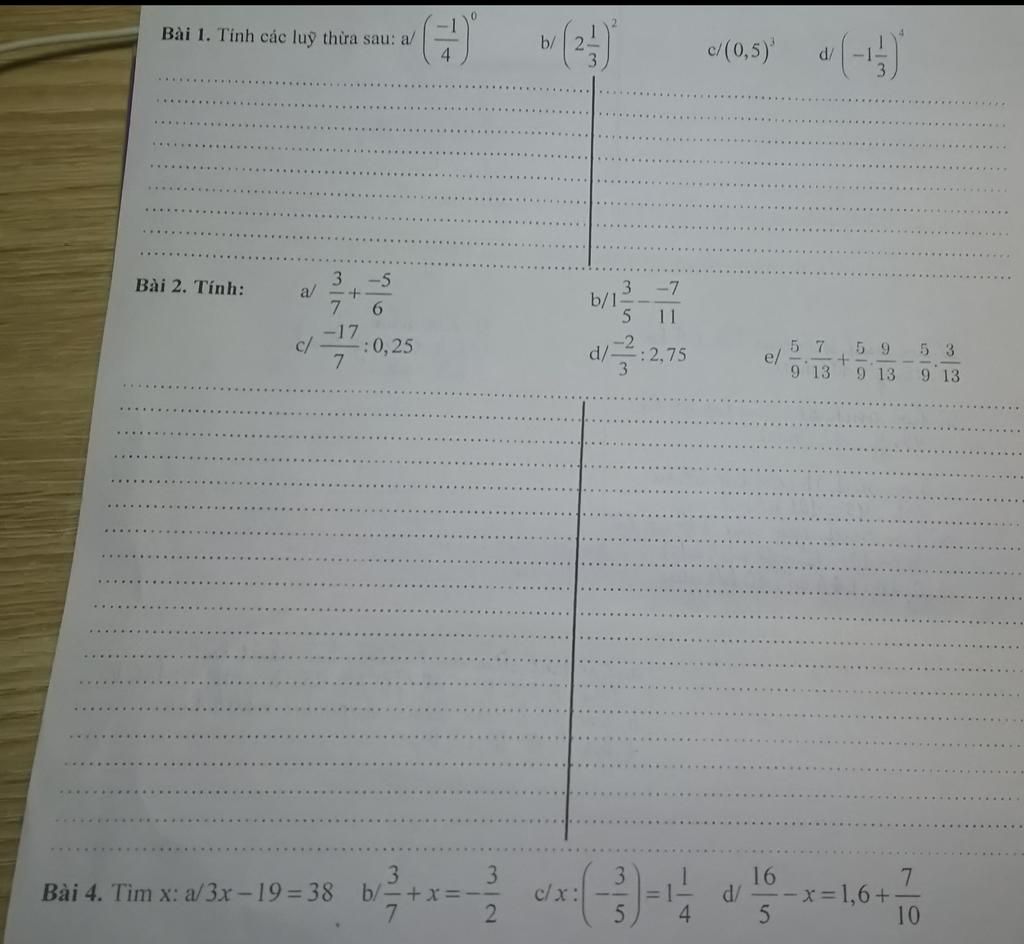 Bài 1. Tính các luỹ thừa sau: a/ $\left(\frac{-1}{4}\right)^0$ b/ $\left(2\frac{1}{3}\right)^2$ c/ $(0,5)^3$ d/ $\left(-1\frac{1}{3}\right)^4$
Bài 2. Tính: a/ $\frac{3}{7}+\frac{-5}{6}$ b/ $1\frac{3}{5}-\frac{-7}{11}$
c/ $\frac{-17}{7}:0,25$ d/ $\frac{-2}{3}:2,75$ e/ $\frac{5}{9}.\frac{7}{13}+\frac{5}{9}.\frac{9}{13}-\frac{5}{9}.\frac{3}{13}$
Bài 4. Tìm x: a/ $3x-19=38$ b/ $\frac{3}{7}+x=-\frac{3}{2}$ c/ $x:\left(-\frac{3}{5}\right)=1\frac{1}{4}$ d/ $\frac{16}{5}-x=1,6+\frac{7}{10}$